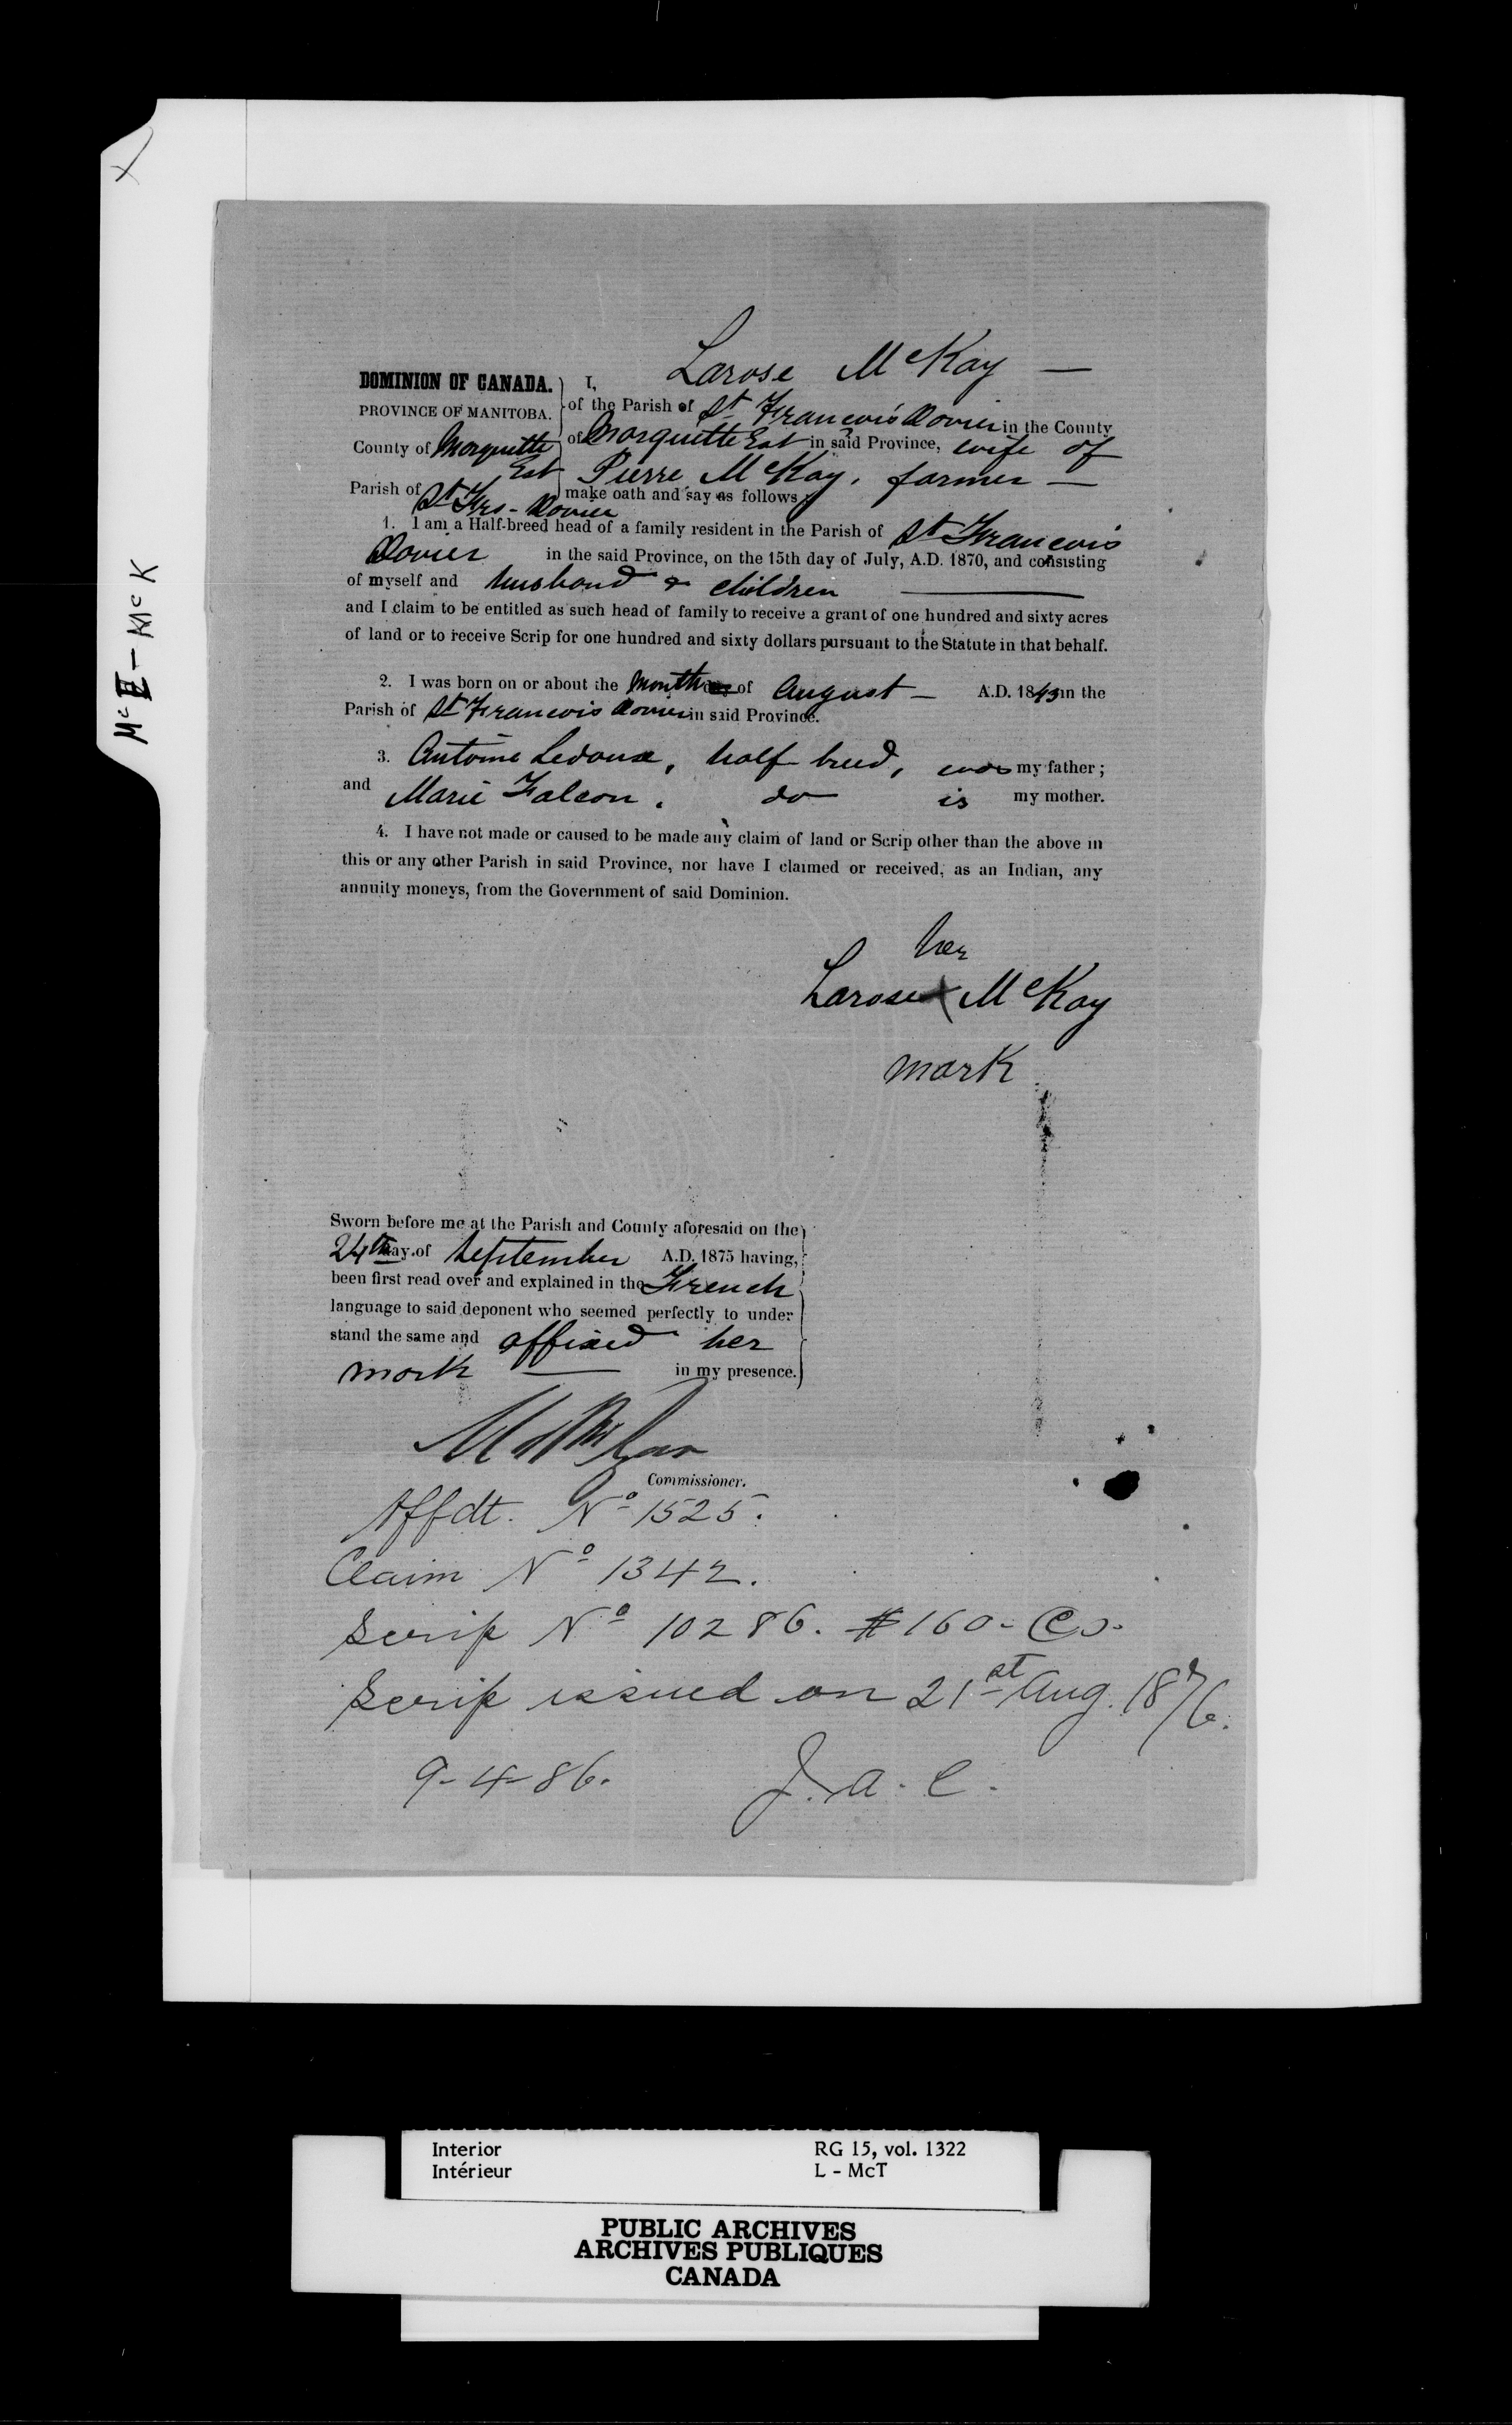 Mc E – McK
Larose McKay —
DOMINION OF CANADA. I,
PROVINCE OF MANITOBA. of the Parish of St Francois Xavier in the County
County of Marquette of Marquette Est in said Province, wife of
Est Pierre McKay, farmer —
Parish of St Frs - Xavier make oath and say as follows:
1. I am a Half-breed head of a family resident in the Parish of St Francois
Xavier in the said Province, on the 15th day of July, A.D. 1870, and consisting
of myself and husband & children
and I claim to be entitled as such head of family to receive a grant of one hundred and sixty acres
of land or to receive Scrip for one hundred and sixty dollars pursuant to the Statute in that behalf.
2. I was born on or about the month of August — A.D. 1843 in the
Parish of St Francois Xavier in said Province.
3. Antoine Ledoux, half breed, was my father;
and Marie Falcon, do is my mother.
4. I have not made or caused to be made any claim of land or Scrip other than the above in
this or any other Parish in said Province, nor have I claimed or received, as an Indian, any
annuity moneys, from the Government of said Dominion.
her
Larose X McKay
mark
Sworn before me at the Parish and County aforesaid on the
24th day of September A.D. 1875 having,
been first read over and explained in the French
language to said deponent who seemed perfectly to under
stand the same and affixed her
mark — in my presence.
Commissioner.
Affdt. No 1525.
Claim No 1342.
Scrip No 10286. $160-
Scrip issued on 21st Aug. 1876.
9-4-86. J. A. C.
Interior RG 15, vol. 1322
Intérieur L - McT
PUBLIC ARCHIVES
ARCHIVES PUBLIQUES
CANADA